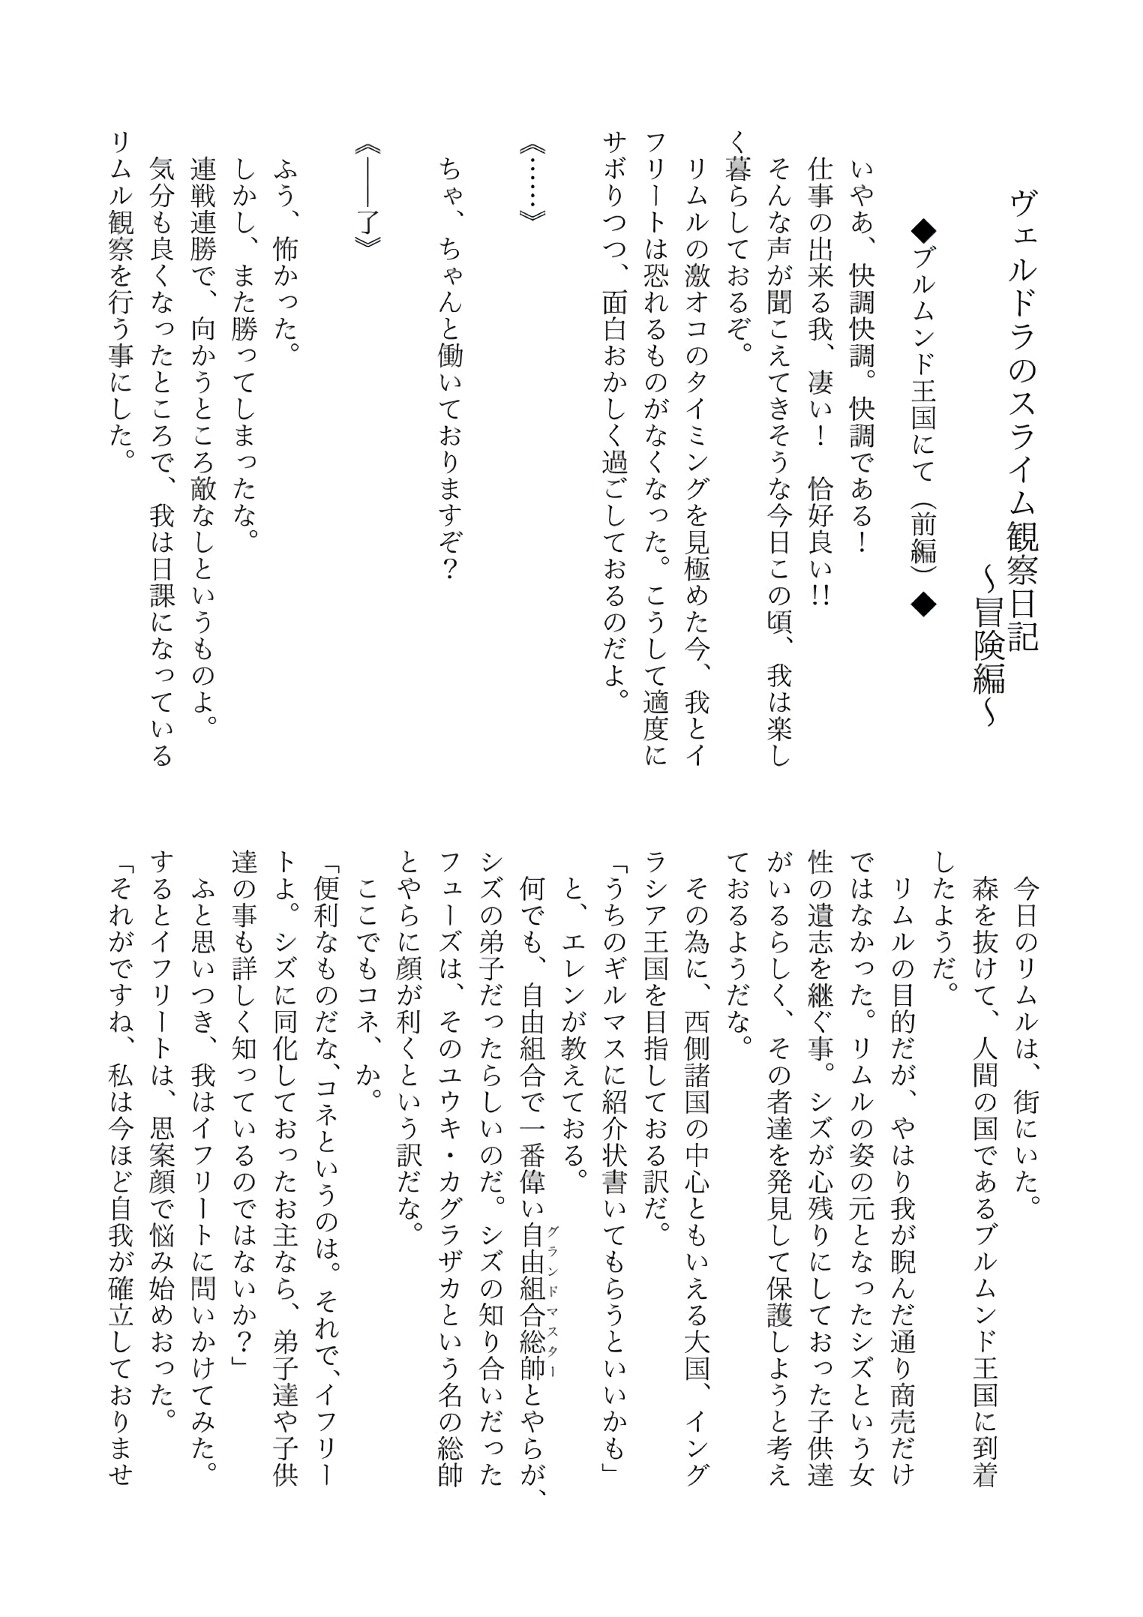 ヴェルドラのスライム観察日記
～冒険編～
◆ブルムンド王国にて（前編）◆
いやあ、快調快調。快調である！
仕事の出来る我、凄い！　恰好良い!!
そんな声が聞こえてきそうな今日この頃、我は楽し
く暮らしておるぞ。
リムルの激オコのタイミングを見極めた今、我とイ
フリートは恐れるものがなくなった。こうして適度に
サボりつつ、面白おかしく過ごしておるのだよ。
《……》
ちゃ、ちゃんと働いておりますぞ？
《――了》
ふう、怖かった。
しかし、また勝ってしまったな。
連戦連勝で、向かうところ敵なしというものよ。
気分も良くなったところで、我は日課になっている
リムル観察を行う事にした。
今日のリムルは、街にいた。
森を抜けて、人間の国であるブルムンド王国に到着
したようだ。
リムルの目的だが、やはり我が睨んだ通り商売だけ
ではなかった。リムルの姿の元となったシズという女
性の遺志を継ぐ事。シズが心残りにしておった子供達
がいるらしく、その者達を発見して保護しようと考え
ておるようだな。
その為に、西側諸国の中心ともいえる大国、イング
ラシア王国を目指しておる訳だ。
「うちのギルマスに紹介状書いてもらうといいかも」
と、エレンが教えておる。
何でも、自由組合で一番偉い自由組合総帥とやらが、
グランドマスター
シズの弟子だったらしいのだ。シズの知り合いだった
フューズは、そのユウキ・カグラザカという名の総帥
とやらに顔が利くという訳だな。
ここでもコネ、か。
「便利なものだな、コネというのは。それで、イフリー
トよ。シズに同化しておったお主なら、弟子達や子供
達の事も詳しく知っているのではないか？」
ふと思いつき、我はイフリートに問いかけてみた。
するとイフリートは、思案顔で悩み始めおった。
「それがですね、私は今ほど自我が確立しておりませ